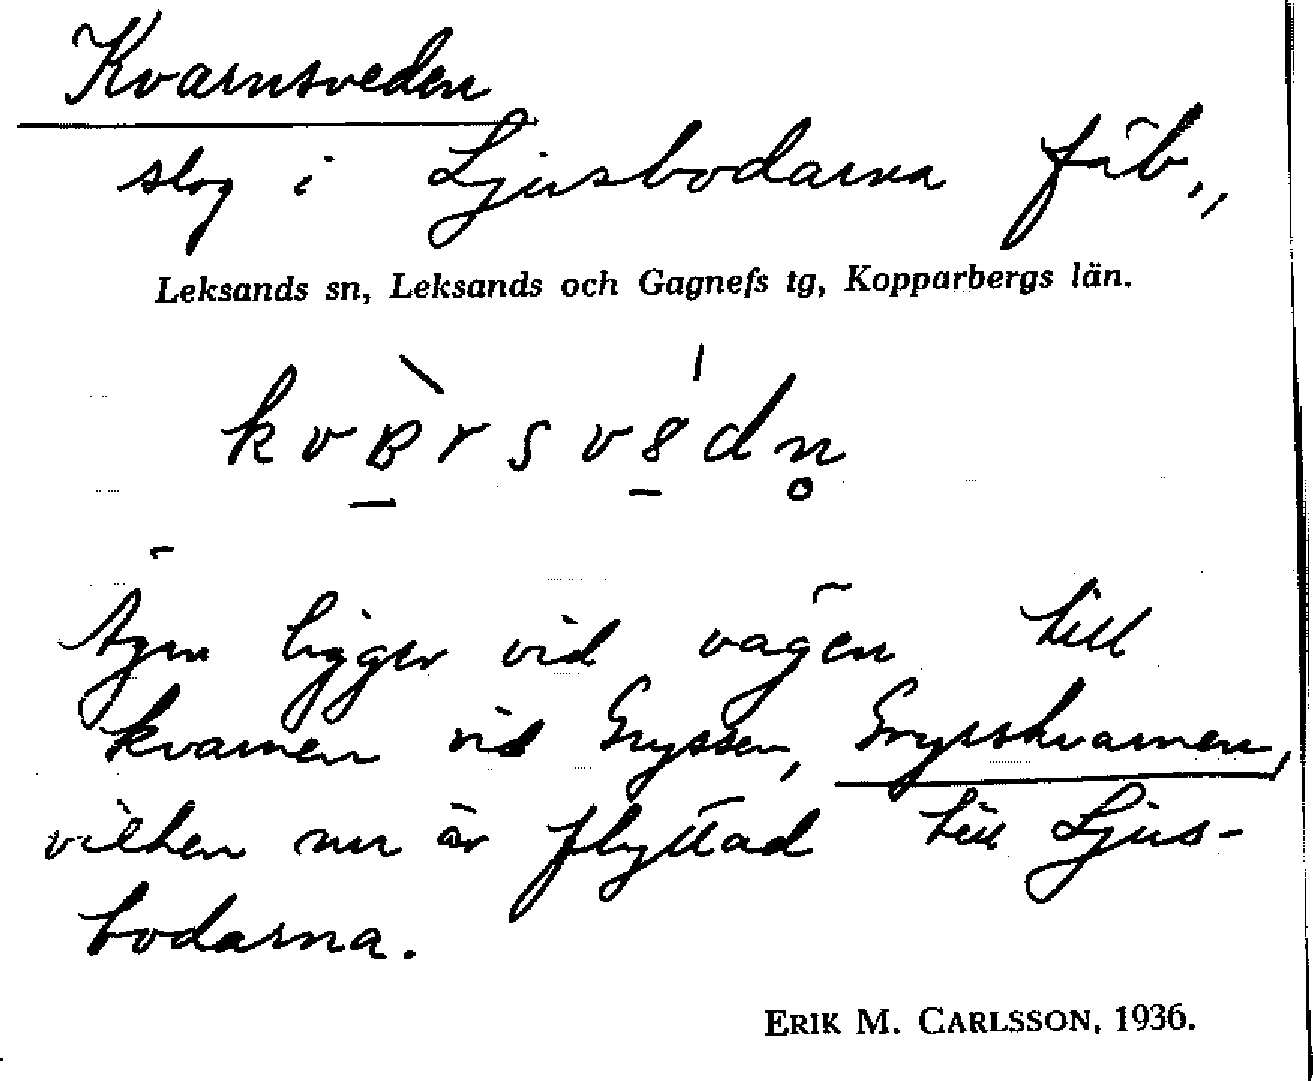 Kvarnsveden
slog i Ljusbodarna fäb.,,
Leksands sn, Leksands och Gagnefs tg, Kopparbergs län.
ligger vid vägen till
kvarnen vid Gryssen, Grysskvarnen,
vilken nu är flyttad till Ljus-
bodarna.
ERIK M. CARLSSON, 1936.